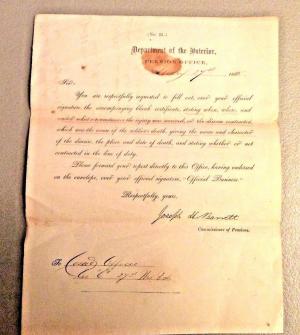 (No. 21.)
Department of the Interior,
PENSION OFFICE,
27th 186
Sir:
You are respectfully requested to fill out, over your official
signature, the accompanying blank certificate, stating when, where, and
under what circumstances the injury was received, or the disease contracted
which was the cause of the soldier's death, giving the name and character
of the disease, the place and date of death, and stating whether or not
contracted in the line of duty.
Please forward your report directly to this Office, having endorsed
on the envelope, over your official signature, "Official Business."
Respectfully, yours,
Joseph H. Barrett
Commissioner of Pensions.
To
Co. C. 27th